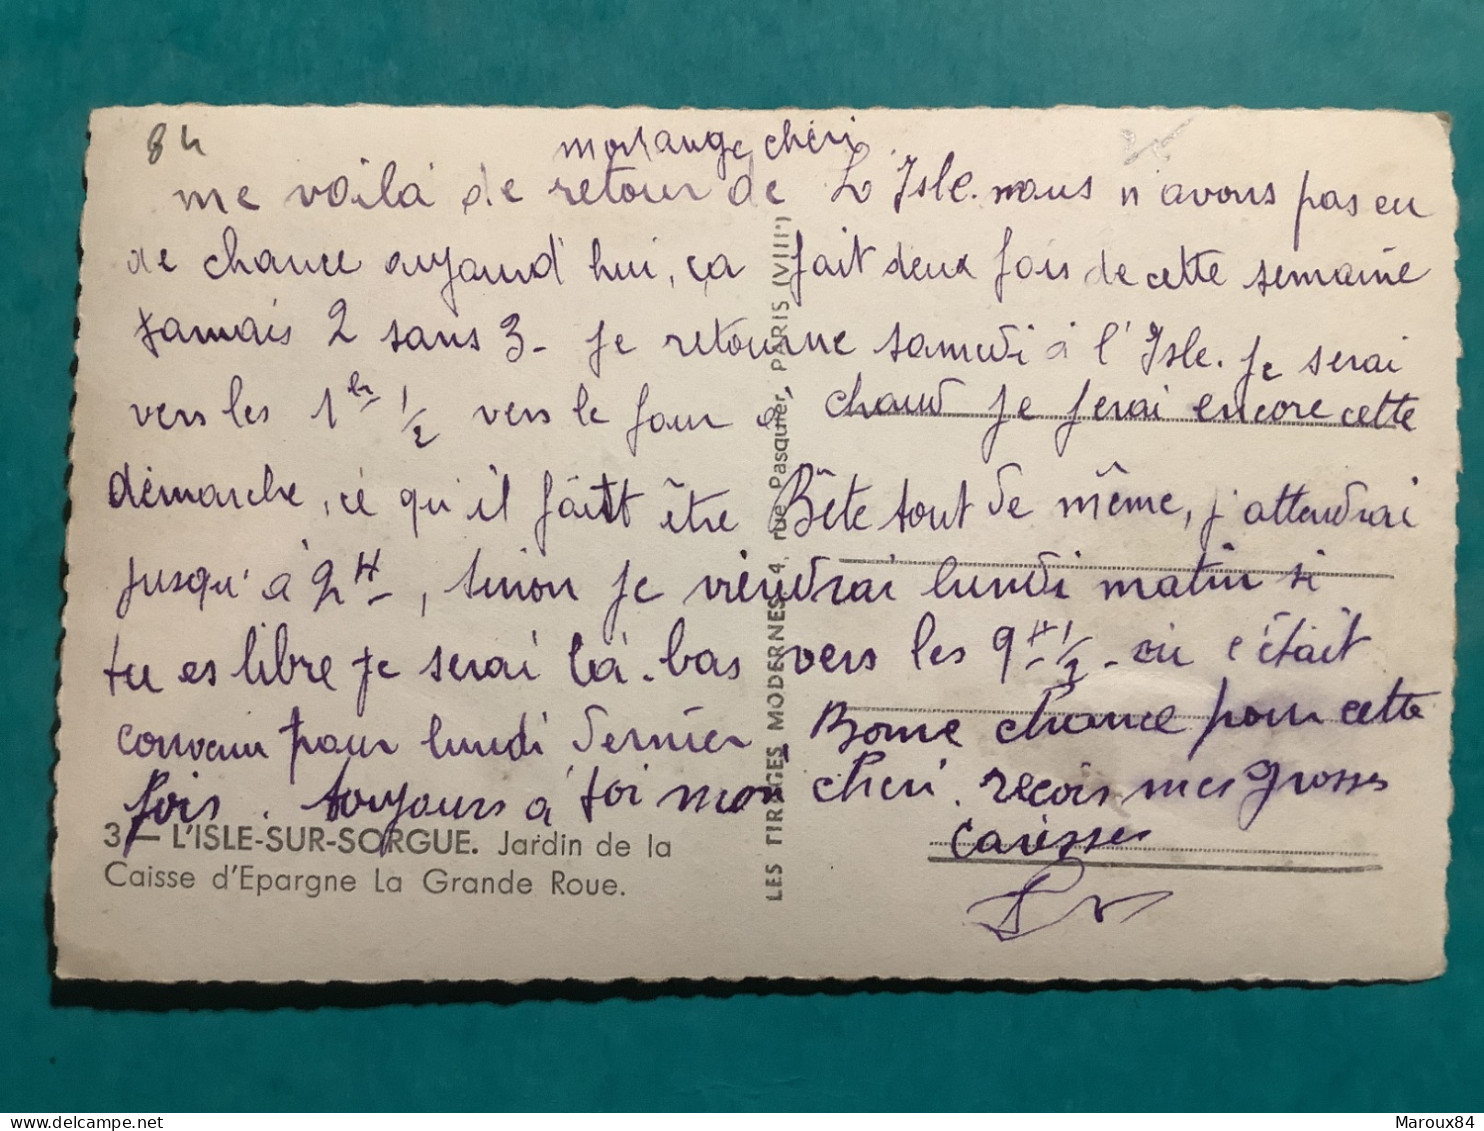 84
mon ange chéri
me voilà de retour de L'Isle. nous n'avons pas eu
de chance aujourd'hui, ça fait deux fois de cette semaine
jamais 2 sans 3 - je retourne samedi à l'Isle. je serai
vers les 1 h 1/2 vers le four à chaud je ferai encore cette
démarche, ce qu'il faut être Bête tout de même, j'attendrai
jusqu'à 2 H, sinon je viendrai lundi matin si
tu es libre je serai là-bas vers les 9 H 1/2 - où c'était
convenu pour lundi dernier. Bonne chance pour cette
fois. toujours à toi mon chéri. reçois mes grosses
caresses
3 — L'ISLE-SUR-SORGUE. Jardin de la
Caisse d'Epargne La Grande Roue.
LES TIRAGES MODERNES 4, rue Pasquier, PARIS (VIIIe)
Maroux84